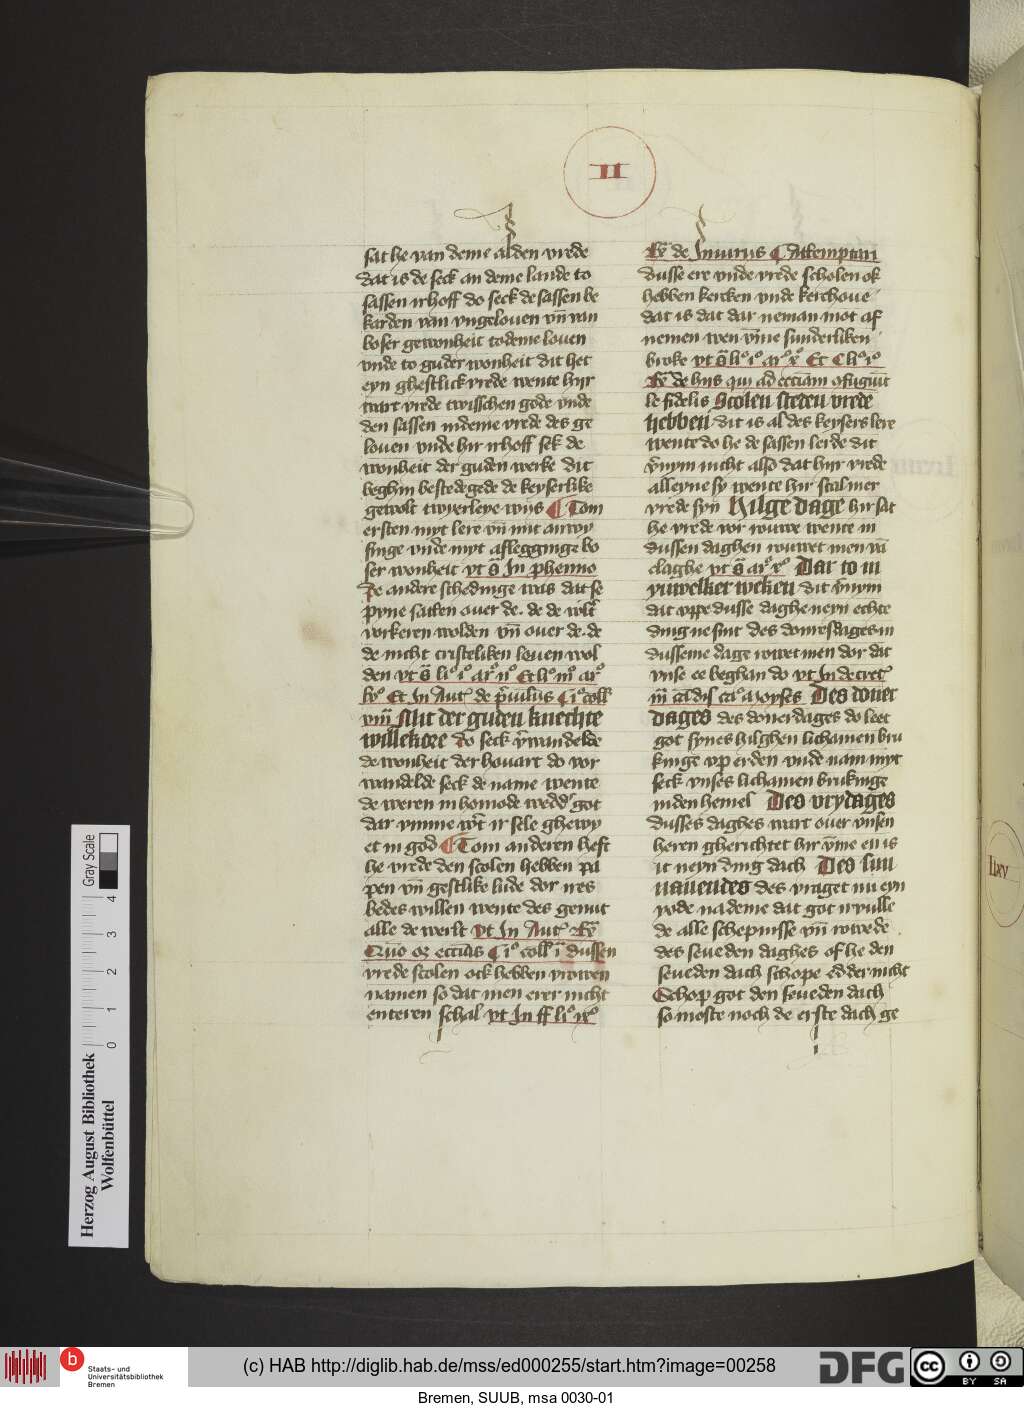 II
sat he van deme alden vrede
dat is de seck an deme lande to
sassen irhoff do seck de sassen be
karden van vngelouen vn̄ van
boser gewonheit to deme louen
vnde to guder wonheit dit het
eyn ghestlick vrede wente hyr
wart vrede twisschen gode vnde
den sassen in deme vrede des ge
louen vnde hir irhoff sek de
wonheit der guden werke dit
beghin bestedegede de keyserlike
gewolt twyerleye wijs Tom
ersten myt lere vn̄ mit anwy
singe vnde myt aflegginge bo
ser wonheit vt s̄ In phemio
De andere schedinge was dat se
pyne satten ouer de. de de w̄lt
vorkeren wolden vn̄ ouer de. de
de nicht cristeliken leuen wol
den vt s̄ liº iº arº iiº Et liº iiiº arº
Et In Aut de p̄uiliis Ciº coll
viii Aht der guden knechte
willekore do seck v̄wandelde
de wonheit der houart do vor
wandelde seck de name wente
de weren in homode wedd' got
dar vmme w̄t ir sele ghewy
et in god Tom anderen heft
he vrede den scolen hebben pa
pen vn̄ gestlike lude dor ires
bedes willen wente des genut
alle de werlt vt In Aut R̄
Quo oz eccīas Ciº coll ī dussen
vrede scolen ock hebben vrowen
namen so dat men erer nicht
enteren schal vt In ff liº ixº
R̄ de Iniuriis Attemptari
dusse ere vnde vrede scholen ok
hebben kercken vnde kerchoue
dat is dat dar neman mot af
nemen wen v̄me sunderliken
broke vt s̄ liº iº arº Et C liº iº
R̄ de hiis qui ad ecciam ofugiūt
le fidelis Scolen steden vrede
hebben dit is al des keysers lere
wente do he de sassen lerde dit
v̄nym nicht also dat hyr vrede
alleyne sy wente hir scal mer
vrede syn Hilge dage hir sat
he vrede vor rouwe wente in
dussen daghen rouwet men vā
claghe vt s̄ arº xº Dar to in
yuwelker weken dit v̄nym
dat vppe dusse daghe neyn echte
ding ne sint des donresdages in
dusseme dage rowet men dor dat
vnse ee beghan do vt In decret
Moyses Des doner
dages des donerdages do leet
got synes hilghen lichamen bru
kinge vp erden vnde nam myt
seck vnses lichamen brukinge
in den hemel Des vrydages
dusses daghes wart ouer vnsen
heren gherichtet hir v̄me en is
it neyn ding dach Des sun
nauendes des vraget nu eyn
yode na deme dat got irvulle
de alle schepnisse vn̄ rowede
des seueden daghes of he den
seueden dach schope edder nicht
Schop got den seueden dach
so moste noch de erste dach ge
Lxv
Gray Scale
0 1 2 3 4
Herzog August Bibliothek
Wolfenbüttel
b
Staats- und
Universitätsbibliothek
Bremen
(c) HAB http://diglib.hab.de/mss/ed000255/start.htm?image=00258
DFG
cc
BY SA
Bremen, SUUB, msa 0030-01